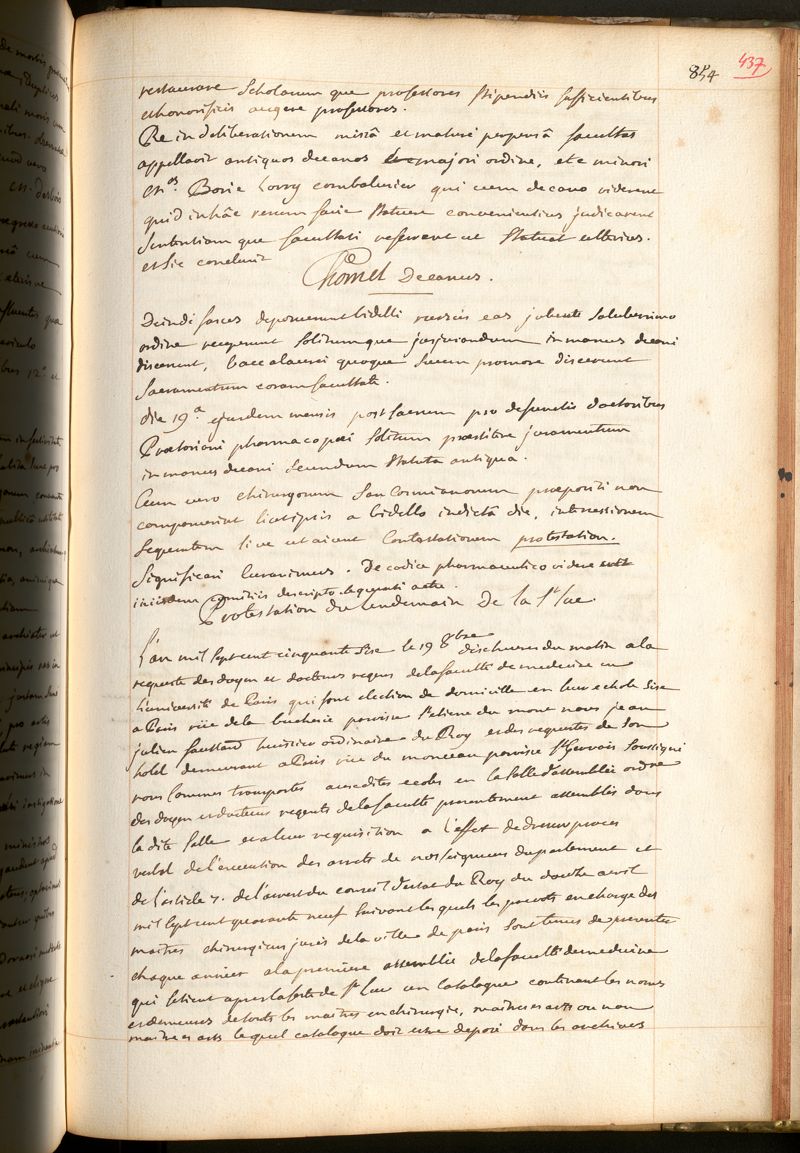 437
854
restaurare Scholarum que professores stipendiis sufficientibus
et honorificis augere professores.
Re in deliberationem missâ et mature perpensâ facultas
appellavit antiquos decanos majori ordine, et e minori
M.os Borie Lorry combalusier qui cum decano viderent
quid in hâc rerum facie statuere convenientius judicarent
Sententiam que facultati referrent ut statuat ulterius.
et sic conclusit
Chomel Decanus.
Deinde fasces deposuerunt bidelli rursus eas jubente saluberrimo
ordine receperunt solitumque jusjurandum in manus decani
dixerunt, baccalaurei quoque suum promore dixerunt
Sacramentum coram facultate.
die 19a ejusdem mensis post sacrum pro defunctis doctoribus
Praetoriani pharmacopaei solitum praestitere juramentum
in manus decani secundum statuta antiqua.
Cum vero chirurgorum San Cosmianorum praepositi non
comparuerint licet ipsis a bidello indictâ die, intercessionem
sequentem sive ut aiunt Contestationem protestation.
Significari curavimus. De codice pharmaceutico videre
in comitiis descripto
Protestation du lendemain De la St Luc.
L'an mil sept cent cinquante Six le 19 8bre dix heures du matin a la
requeste des doyen et docteurs regens de la faculté de medecine en
l'université de Paris qui font election de domicille en leur echole sise
a Paris rüe de la bucherie paroisse St etienne du mont nous jean
julien huissier ordinaire du Roy et des requestes de son
hotel demeurant a Paris rue du monceau paroisse St Gervais Soussigné
nous sommes transportés auxdites ecoles en la salle d'assemblée ordre
des doyen et docteurs regents de la faculté presentement assemblés dans
la dite salle et a leur requisition a l'effet de dresser proces
verbal de l'execution des arrets de nosseigneurs du parlement et
de l'article 7. de l'arrest du conseil d'etat du Roy du douze avril
mil sept cent quarante neuf suivant les quels les prevots en charge des
maitres chirurgiens jurés de la ville de paris sont tenus de presenter
chaque année a la premiere assemblée de la faculté de medecine
qui se tient apres la feste de St Luc un catalogue contenant les noms
et demeures de touts les maitres en chirurgie, maitres es arts ou non
maitres es arts lequel catalogue doit estre deposé dans les archives